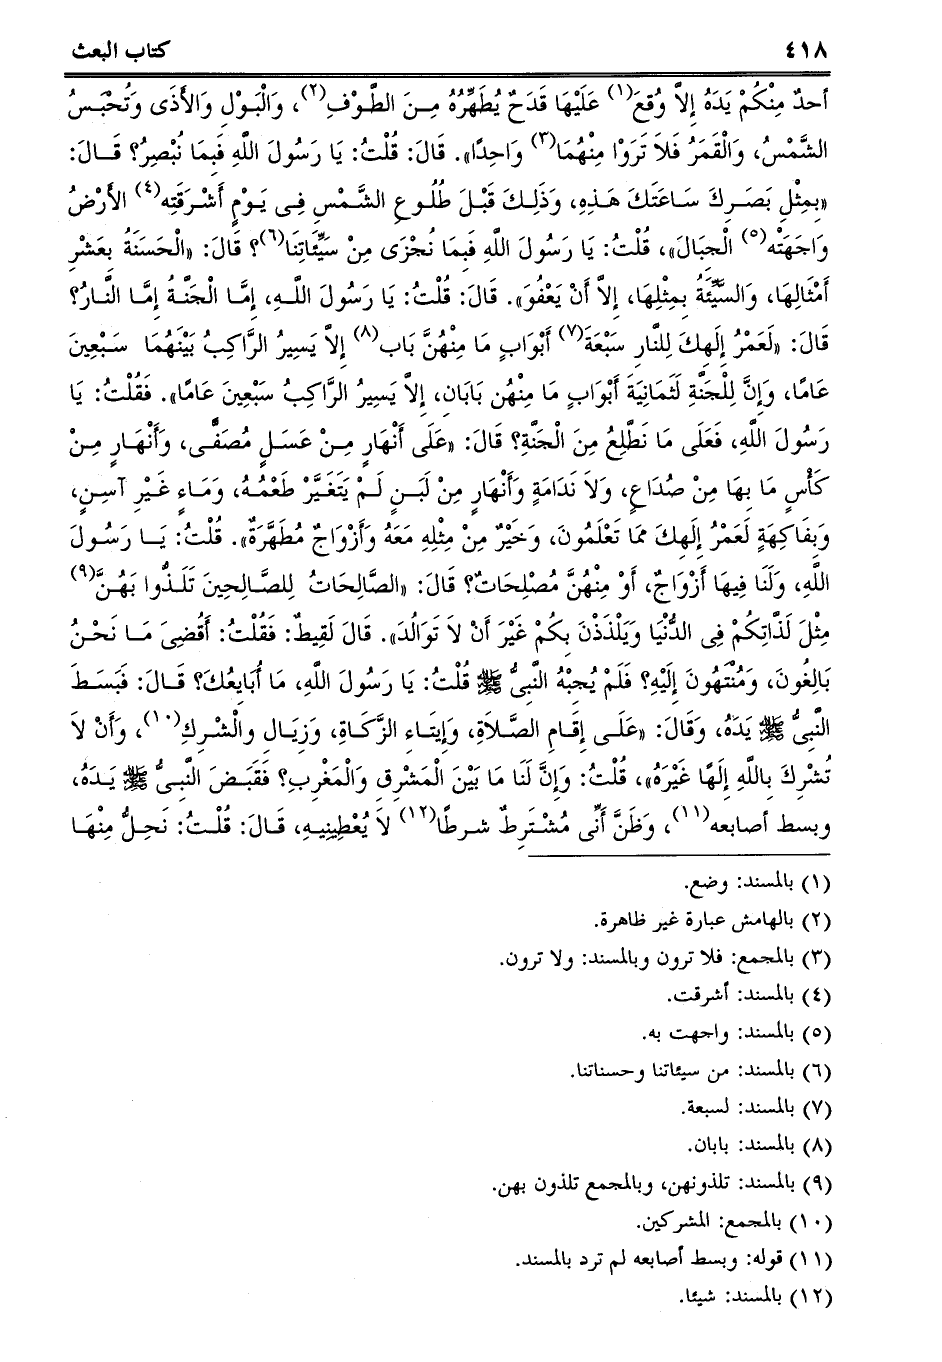 ٤١٨ كتاب البعث
أحدٌ مِنْكُمْ يَدَهُ إلاَّ وُقِعَ(١) عَلَيْهَا قَدَحٌ يُطَهِّرُهُ مِنَ الطَّوْفِ(٢)، وَالْبَوْلِ وَالأَذَى وَتُحْبَسُ
الشَّمْسُ، وَالْقَمَرُ فَلاَ تَرَوْا مِنْهُمَا(٣) وَاحِدًا». قَالَ: قُلْتُ: يَا رَسُولَ اللَّهِ فَبِمَا نُبْصِرُ؟ قَالَ:
«بِمِثْلِ بَصَرِكَ سَاعَتَكَ هَذِهِ، وَذَلِكَ قَبْلَ طُلُوعِ الشَّمْسِ فِى يَوْمٍ أَشْرَقَتِه(٤) الأَرْضُ
وَاجَهَتْه(٥) الْجِبَالَ»، قُلْتُ: يَا رَسُولَ اللَّهِ فَبِمَا نُجْزَى مِنْ سَيِّئَاتِنَا(٦)؟ قَالَ: «الْحَسَنَةُ بِعَشْرِ
أَمْثَالِهَا، وَالسَّيِّئَةُ بِمِثْلِهَا، إلاَّ أَنْ يَعْفُوَ». قَالَ: قُلْتُ: يَا رَسُولَ اللَّهِ، إمَّا الْجَنَّةُ إمَّا النَّارُ؟
قَالَ: «لَعَمْرُ إلَهِكَ لِلنَّارِ سَبْعَةَ(٧) أَبْوَابٍ مَا مِنْهُنَّ بَاب(٨) إلاَّ يَسِيرُ الرَّاكِبُ بَيْنَهُمَا سَبْعِينَ
عَامًا، وَإِنَّ لِلْجَنَّةِ لَثَمَانِيَةَ أَبْوَابٍ مَا مِنْهُن بَابَان، إلاَّ يَسِيرُ الرَّاكِبُ سَبْعِينَ عَامًا». فَقُلْتُ: يَا
رَسُولَ اللَّهِ، فَعَلَى مَا نَطَّلِعُ مِنَ الْجَنَّةِ؟ قَالَ: «عَلَى أَنْهَارٍ مِنْ عَسَلٍ مُصَفًّى، وَأَنْهَارٍ مِنْ
كَأْسٍ مَا بِهَا مِنْ صُدَاعٍ، وَلاَ نَدَامَةٍ وَأَنْهَارٍ مِنْ لَبَنٍ لَمْ يَتَغَيَّرْ طَعْمُهُ، وَمَاءٍ غَيْرِ آسِنٍ،
وَبِفَاكِهَةٍ لَعَمْرُ إلَهِكَ مِمَّا تَعْلَمُونَ، وَخَيْرٌ مِنْ مِثْلِهِ مَعَهُ وَأَزْوَاجٌ مُطَهَّرَةٌ». قُلْتُ: يَا رَسُولَ
اللَّهِ، وَلَنَا فِيهَا أَزْوَاجٌ، أَوْ مِنْهُنَّ مُصْلِحَاتٌ؟ قَالَ: «الصَّالِحَاتُ لِلصَّالِحِينَ تَلَذُّوا بَهُنَّ(٩)
مِثْلَ لَذَّاتِكُمْ فِى الدُّنْيَا وَيَلْذَذْنَ بِكُمْ غَيْرَ أَنْ لاَ تَوَالُدَ». قَالَ لَقِيطٌ: فَقُلْتُ: أَقُضِىَ مَا نَحْنُ
بَالِغُونَ، وَمُنْتَهُونَ إِلَيْهِ؟ فَلَمْ يُجِبْهُ النَّبِىُّ ﷺ قُلْتُ: يَا رَسُولَ اللَّهِ، مَا أُبَايِعُكَ؟ قَالَ: فَبَسَطَ
النَّبِىُّ ﷺ يَدَهُ، وَقَالَ: «عَلَى إِقَامِ الصَّلاَةِ، وَإِيتَاءِ الزَّكَاةِ، وَزِيَالِ والْشِرْكِ(١٠)، وَأَنْ لاَ
تُشْرِكَ بِاللَّهِ إِلَهًا غَيْرَهُ»، قُلْتُ: وَإِنَّ لَنَا مَا بَيْنَ الْمَشْرِقِ وَالْمَغْرِبِ؟ فَقَبَضَ النَّبِىُّ ﷺ يَدَهُ،
وبسط أصابعه(١١)، وَظَنَّ أَنِّى مُشْتَرِطٌ شرطًا(١٢) لاَ يُعْطِينِيهِ، قَالَ: قُلْتُ: نَحِلُّ مِنْهَا
(١) بالمسند: وضع.
(٢) بالهامش عبارة غير ظاهرة.
(٣) بالمجمع: فلا ترون وبالمسند: ولا ترون.
(٤) بالمسند: أشرقت.
(٥) بالمسند: واجهت به.
(٦) بالمسند: من سيئاتنا وحسناتنا.
(٧) بالمسند: لسبعة.
(٨) بالمسند: بابان.
(٩) بالمسند: تلذونهن، وبالمجمع تلذون بهن.
(١٠) بالمجمع: المشركين.
(١١) قوله: وبسط أصابعه لم ترد بالمسند.
(١٢) بالمسند: شيئا.